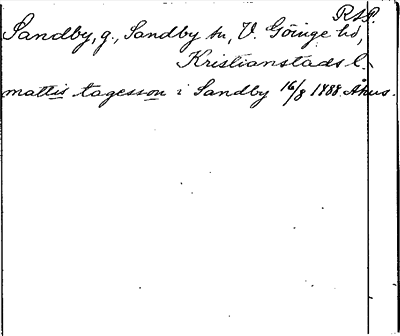 RSP.
Sandby, g., Sandby sn, V. Göinge hd,
Kristianstads l.
mattis tagesson i Sandby 16/8 1488 Åhus.